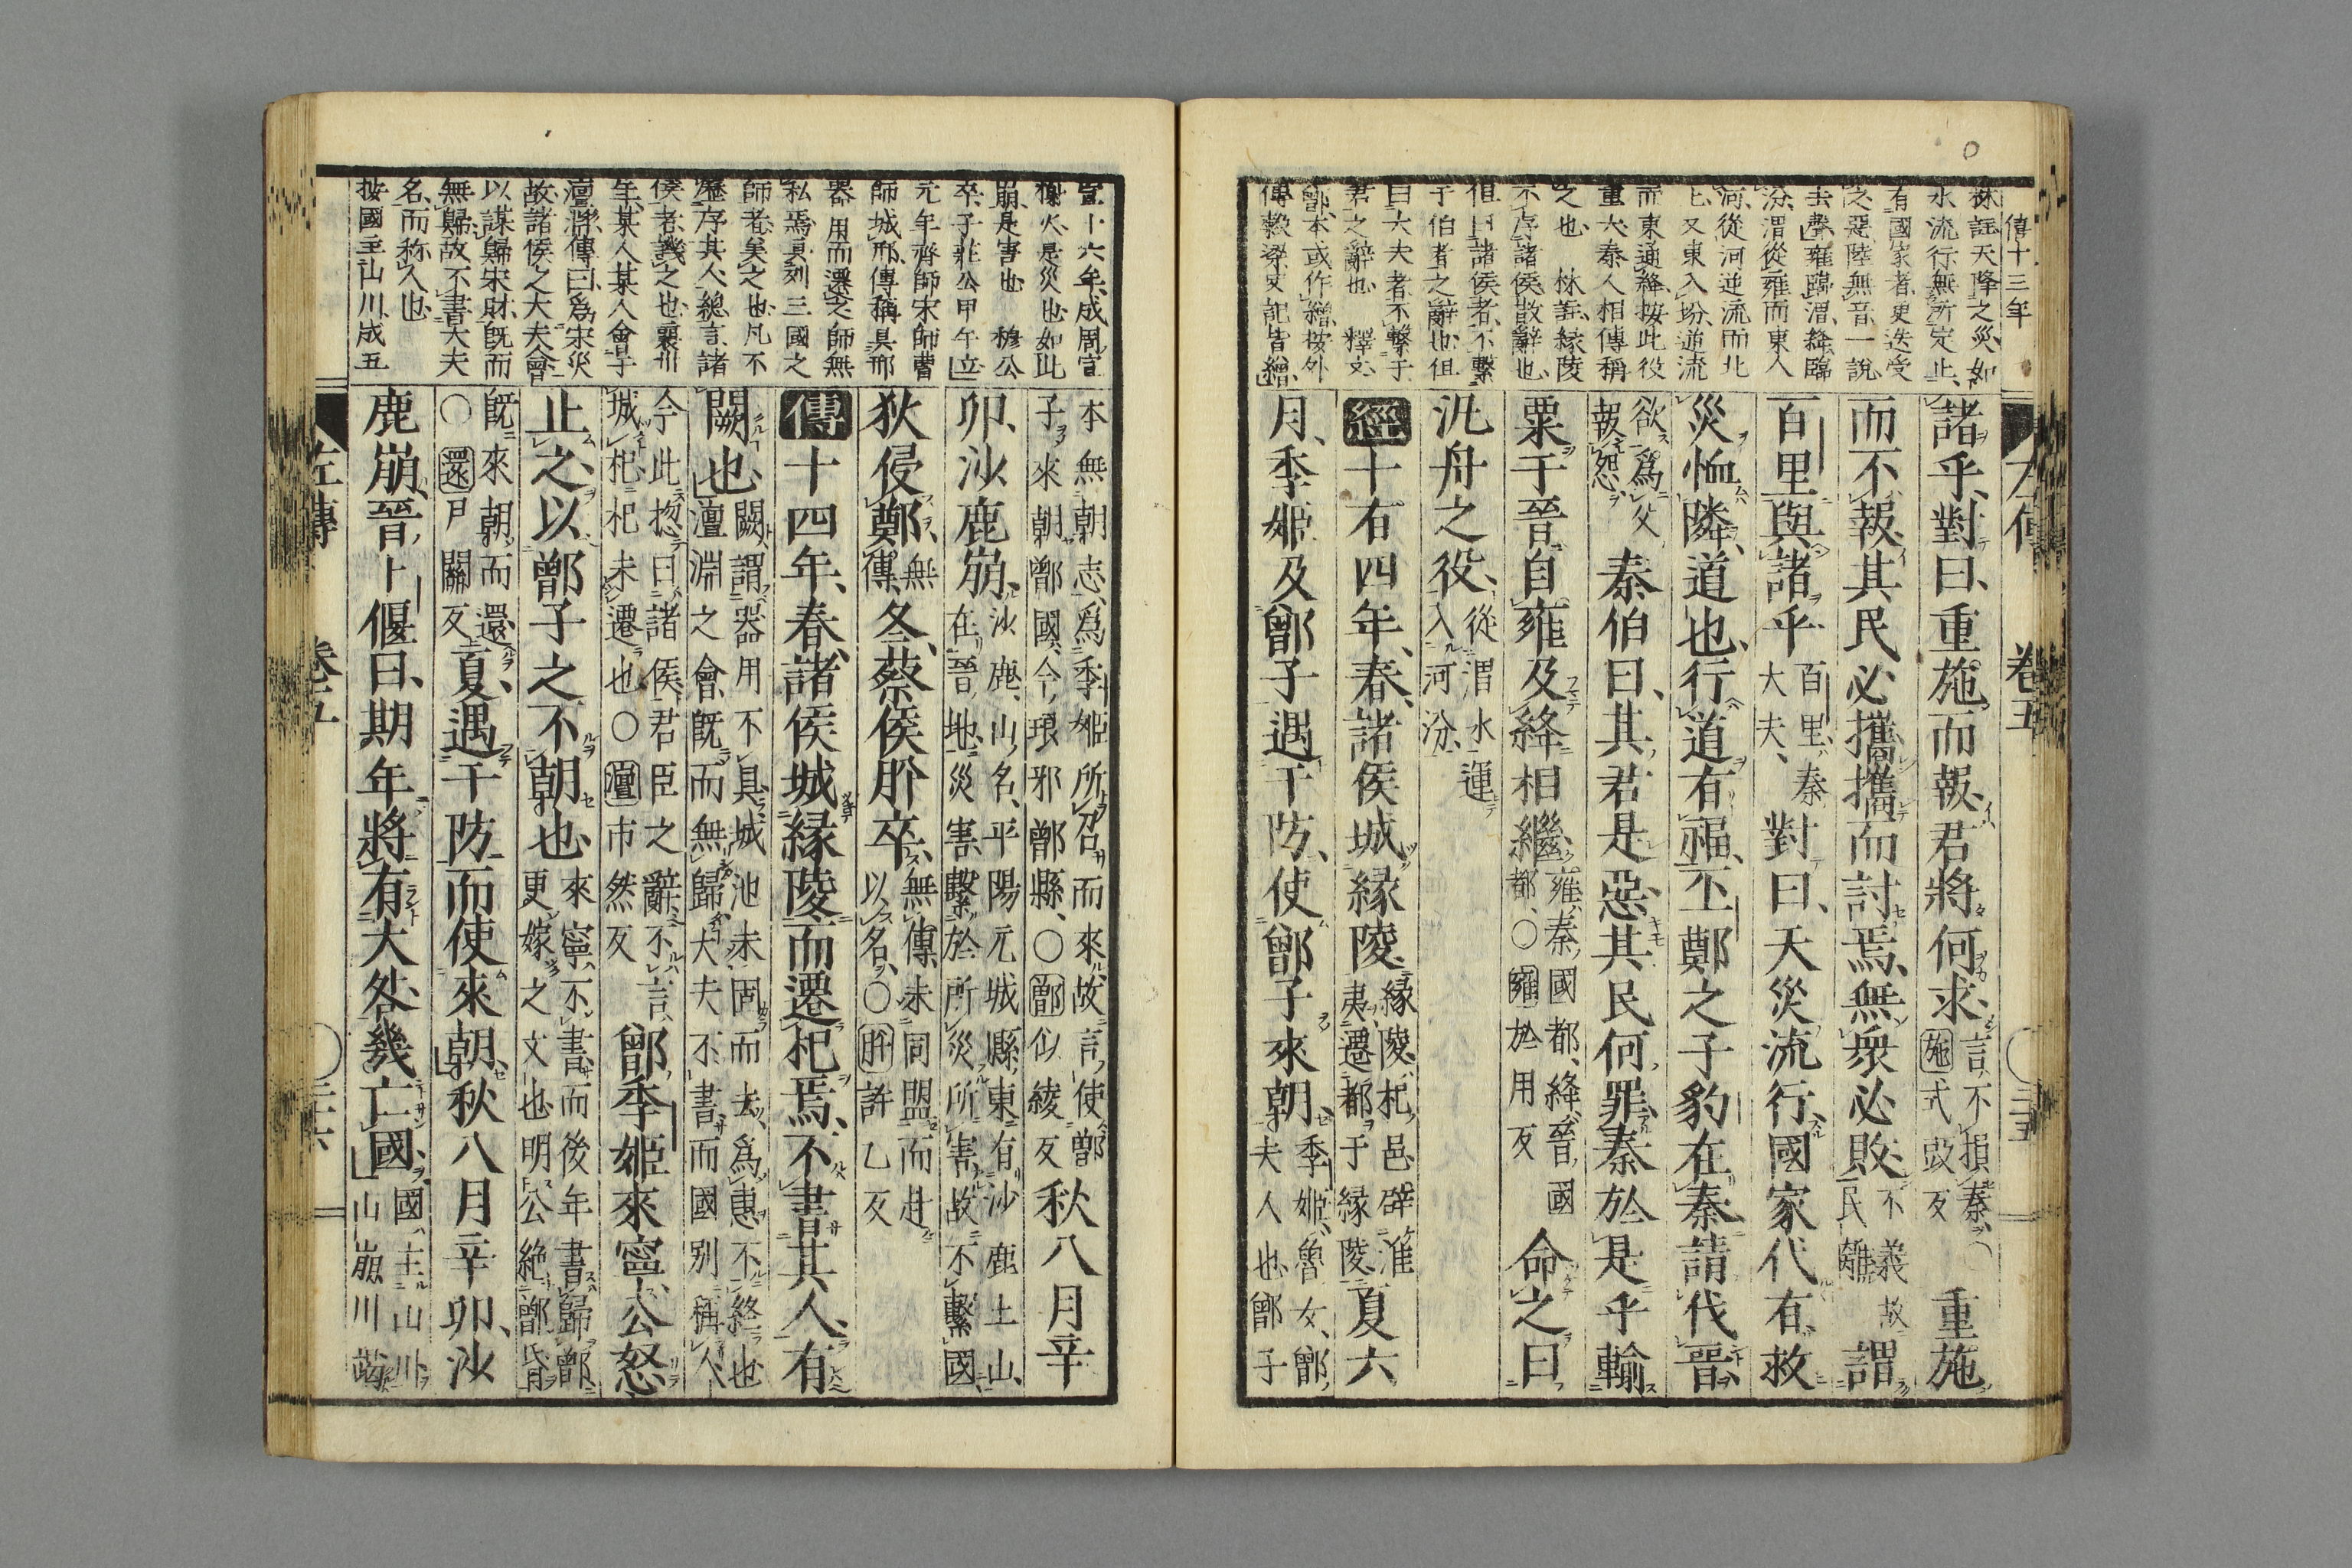 僖十三年
林註天降之災如
水流行無所定止
有國家者更迭受
之惡陸無音一說
去聲雍臨渭絳臨
汾渭從雍而東入
河從河逆流而北
上又東入汾逆流
而東通絳按此役
重大秦人相傳稱
之也 林註緣陵
不序諸侯散辭也
但曰諸侯者不繫
于伯者之辭也但
曰大夫者不繫于
君之辭也 釋文
鄫本或作繒按外
傳穀梁史記皆繒
左傳 卷五
諸乎對曰重施而報君將何求言不損秦施式豉反重施
而不報其民必攜攜而討焉無衆必敗不義故民離謂
百里與諸乎百里秦大夫對曰天災流行國家代有救
災恤鄰道也行道有福丕鄭之子豹在秦請伐晉
欲爲父報怨秦伯曰其君是惡其民何罪秦於是乎輸
粟于晉自雍及絳相繼雍秦國都絳晉國都○雍於用反命之曰
汎舟之役從渭水運入河汾
經十有四年春諸侯城緣陵緣陵杞邑辟淮夷遷都于緣陵夏六
月季姬及鄫子遇于防使鄫子來朝季姬魯女鄫夫人也鄫子
宣十六年成周宣
榭火是災也如此
崩是害也 穆公
卒子莊公甲午立
元年齊師宋師曹
師城邢傳稱具邢
器用而遷之師無
私焉具列三國之
師者美之也凡不
歷序其人總言諸
侯者譏之也襄卅
年某人某人會于
澶淵傳曰爲宋災
故諸侯之大夫會
以謀歸宋財既而
無歸故不書大夫
名而称人也
按國主山川成五
本無朝志爲季姬所召而來故言使鄫子來朝鄫國今琅邪鄫縣○鄫似綾反秋八月辛
卯沙鹿崩沙鹿山名平陽元城縣東有沙鹿土山在晉地災害繫於所災所害故不繫國
狄侵鄭無傳冬蔡侯肸卒無傳未同盟而赴以名○肸許乙反
傳十四年春諸侯城緣陵而遷杞焉不書其人有
闕也闕謂器用不具城池未固而去爲惠不終也澶淵之會既而無歸大夫不書而國別稱人
今此揔曰諸侯君臣之辭不言城杞杞未遷也○澶市然反鄫季姬來寧公怒
止之以鄫子之不朝也來寧不書而後年書歸鄫更嫁之文也明公絶鄫昏
既來朝而還○還戸關反夏遇于防而使來朝秋八月辛卯沙
鹿崩晉卜偃曰期年將有大咎幾亡國國主山川山崩川竭
左傳 卷五 三十六